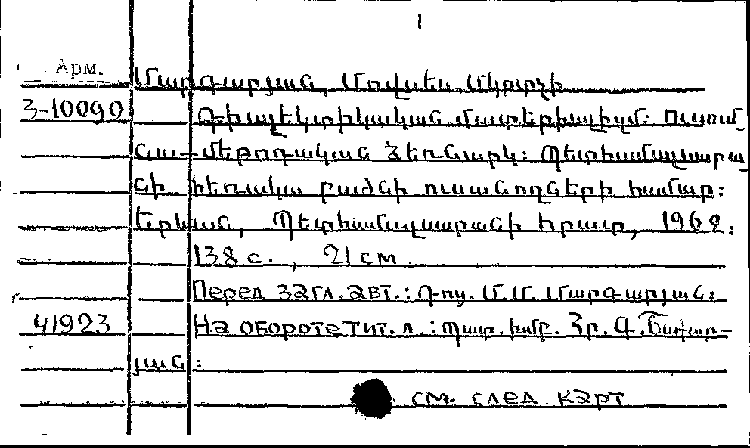 1
Арм. Մարգարյան, Մովսես Մկրտչի
3-10090 Դիալեկտիկական մատերիալիզմ: Ուսում
նա-մեթոդական ձեռնարկ: Պետհամալսարա
նի հեռակա բաժնի ուսանողների համար:
Երևան, Պետհամալսարանի հրատ, 1968:
138 с., 21 см
Перед загл. авт.: Դոց. Մ. Մ. Մարգարյան:
41923 На обороте тит. л.: Պատ. խմբ. Հր. Գ.
յան:
см. след карт